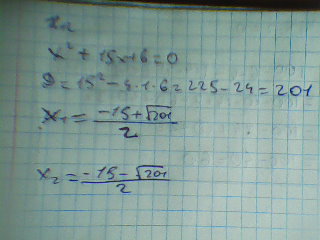 x² + 15x + 6 = 0
D = 15² - 4·1·6 = 225 - 24 = 201
x₁ = (-15 + √201) / 2
x₂ = (-15 - √201) / 2